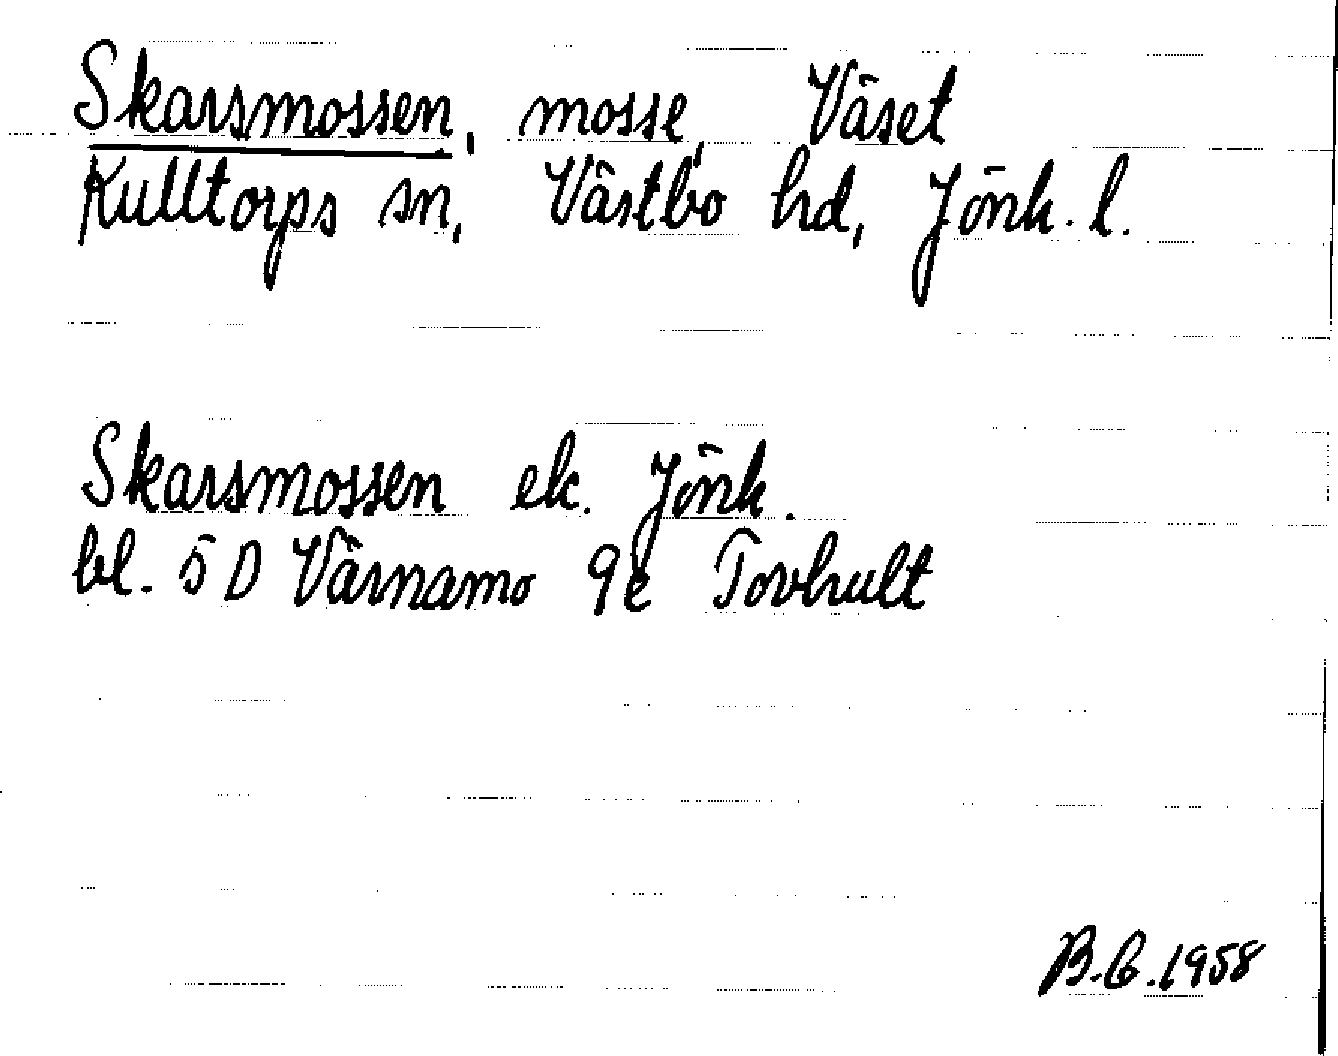 Skarsmossen, mosse, Väset
Kulltorps sn, Västbo hd, Jönk. l.
Skarsmossen ek. Jönk.
bl. 5 D Värnamo 9e Tovhult
B.G.1958